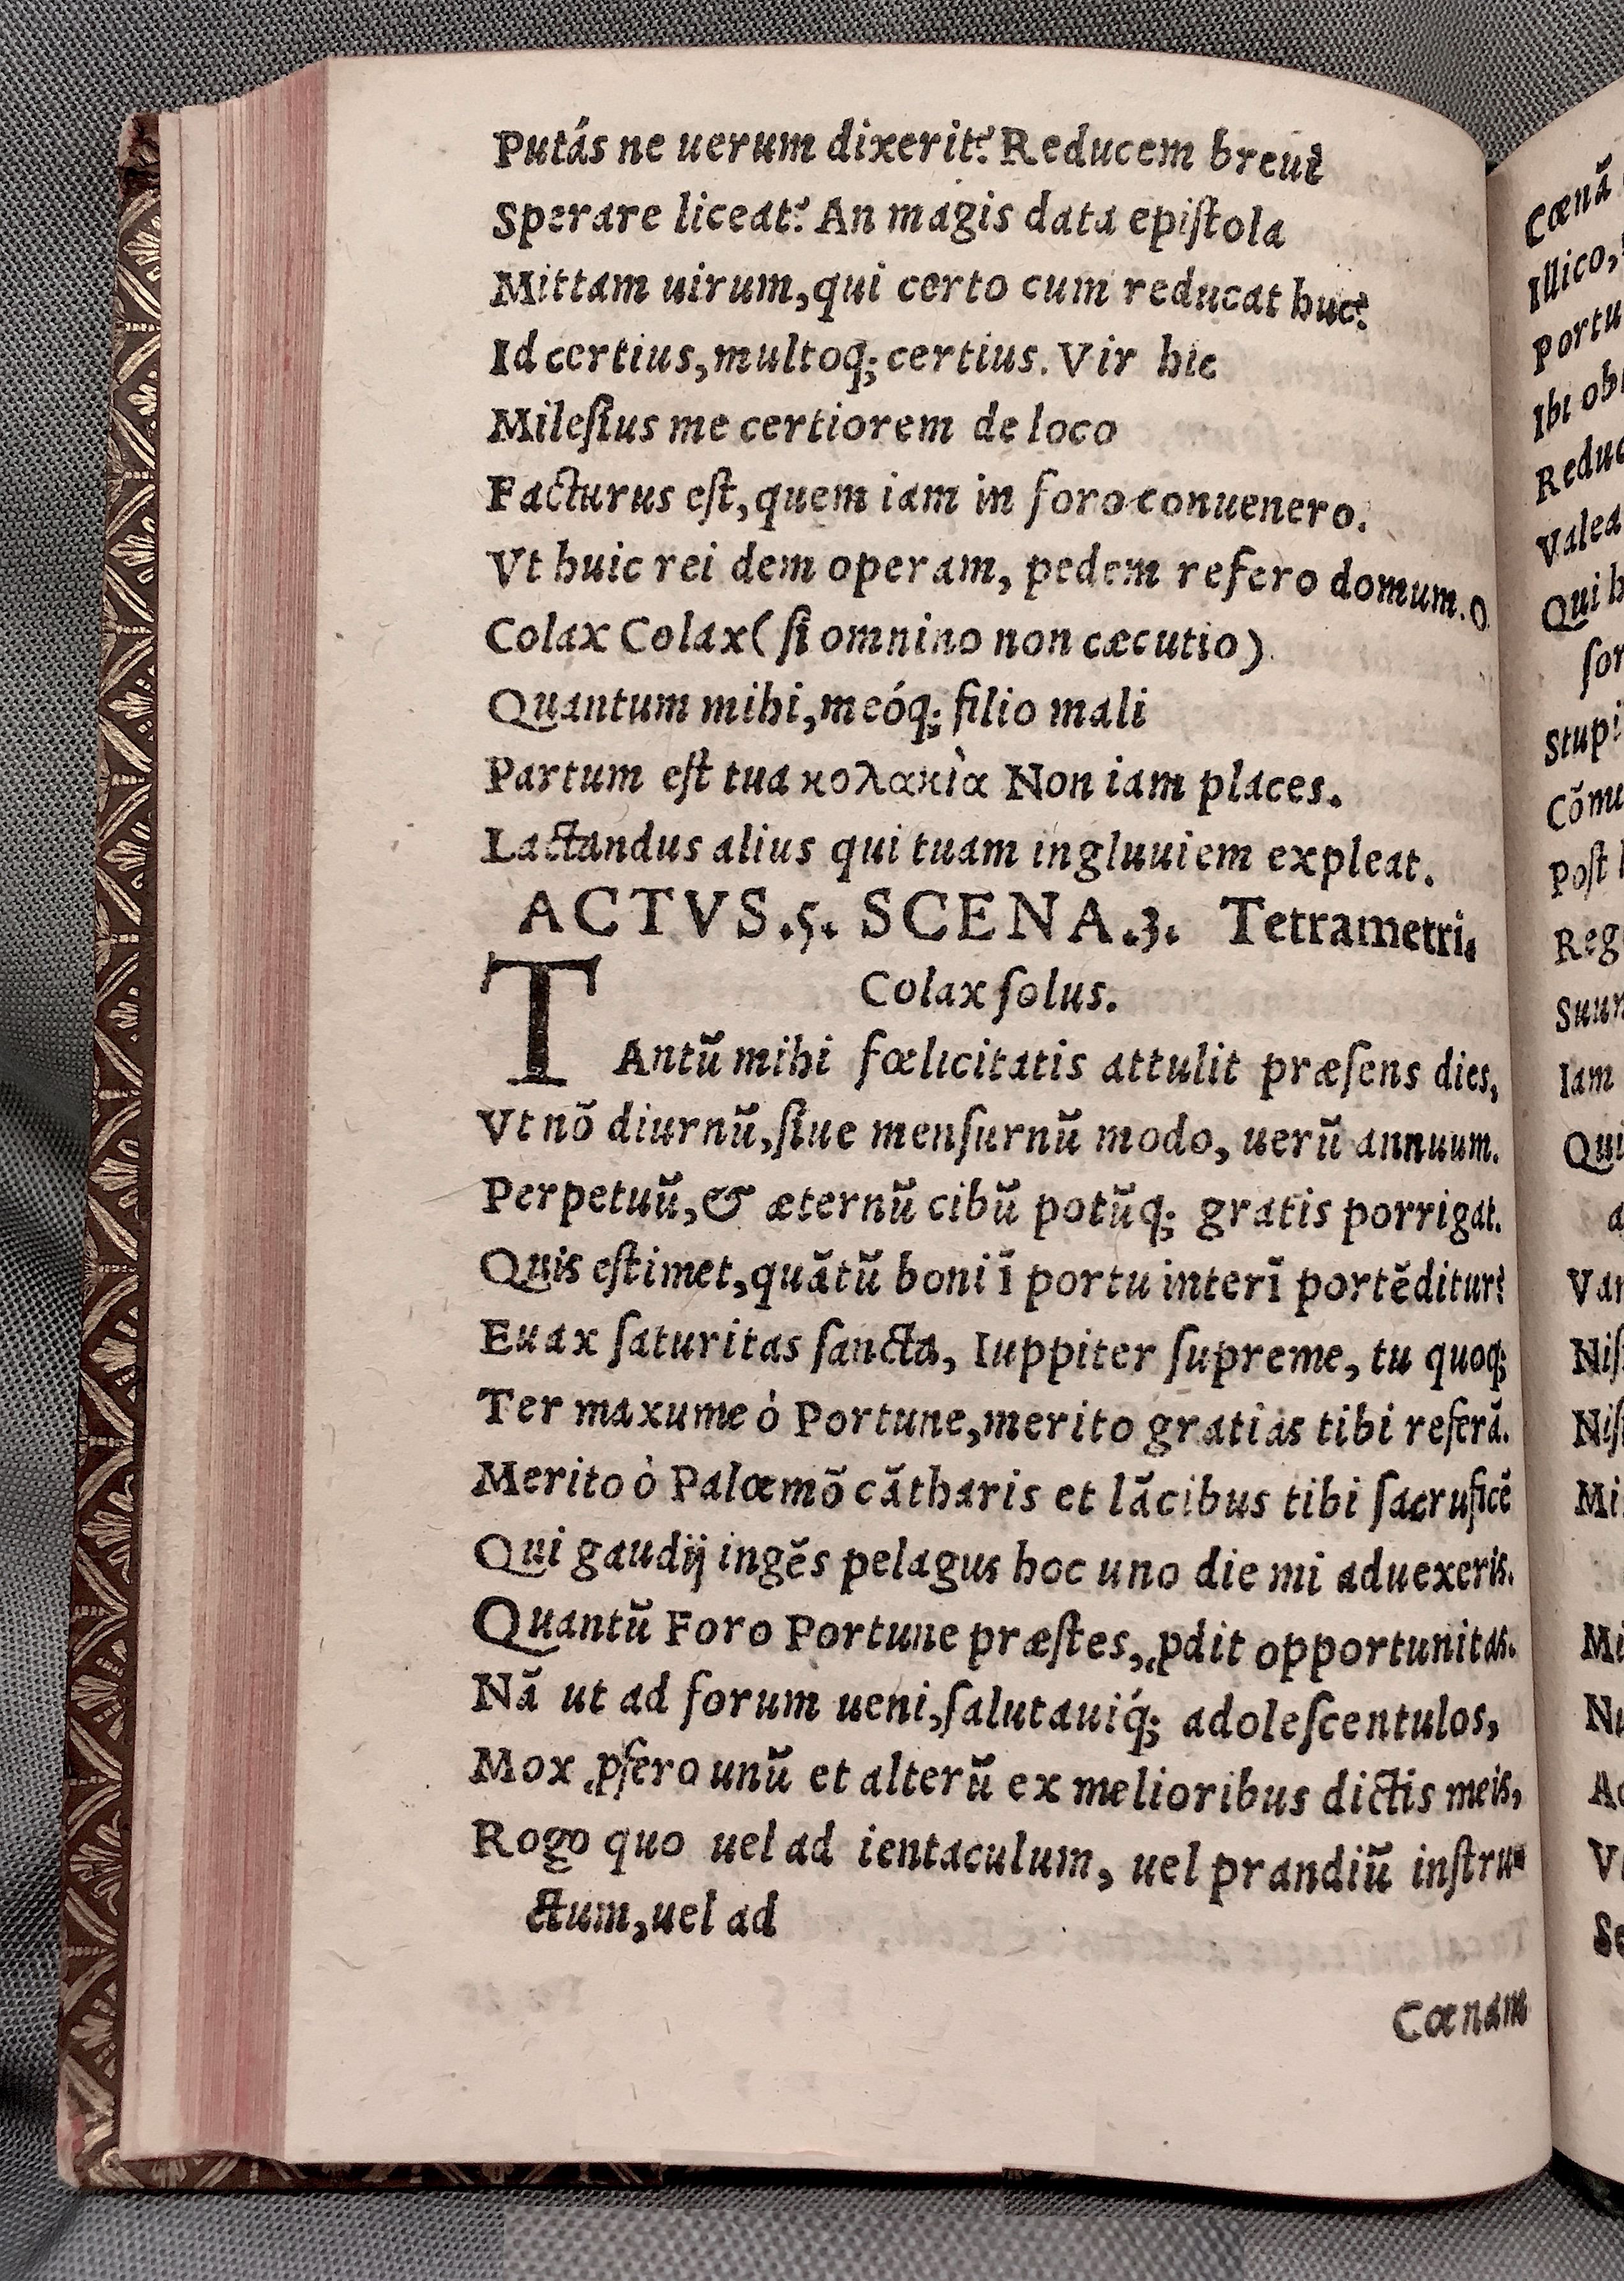 Putás ne uerum dixerit? Reducem breui
Sperare liceat? An magis data epiſtola
Mittam uirum, qui certo cum reducat huc?
Id certius, multoq; certius. Vir hic
Mileſius me certiorem de loco
Facturus eſt, quem iam in foro conuenero.
Vt huic rei dem operam, pedem refero domum. O
Colax Colax ( ſi omnino non cæcutio)
Quantum mihi, meóq; filio mali
Partum eſt tua κολακὶα Non iam places.
Lactandus alius qui tuam ingluuiem expleat.
ACTVS .5. SCENA .3. Tetrametri.
Colax ſolus.
TAntū mihi fœlicitatis attulit præſens dies,
Vt nō diurnū, ſiue menſurnū modo, uerū annuum.
Perpetuū, & æternū cibū potūq; gratis porrigat.
Quis eſtimet, quātū boni ī portu interī portēditur?
Euax ſaturitas ſancta, Iuppiter ſupreme, tu quoq;
Ter maxume ò Portune, merito gratias tibi referā.
Merito ò Palœmō cātharis et lācibus tibi ſacruficē
Qui gaudij ingēs pelagus hoc uno die mi aduexeris.
Quantū Foro Portune præſtes, ꝓdit opportunitas.
Nā ut ad forum ueni, ſalutauiq́; adoleſcentulos,
Mox ꝓfero unū et alterū ex melioribus dictis meis,
Rogo quo uel ad ientaculum, uel prandiū inſtru-
ctum, uel ad
Cœnam
Cœnā
Illico,
Portu
Ibi
Reduc
Valea
Qui h
ſor
Stupi
Cōmu
Poſt
Reg
Suur
Iam
Qui
a
Var
Niſ
Niſ
Mi
Mi
Nu
Ac
V
Se